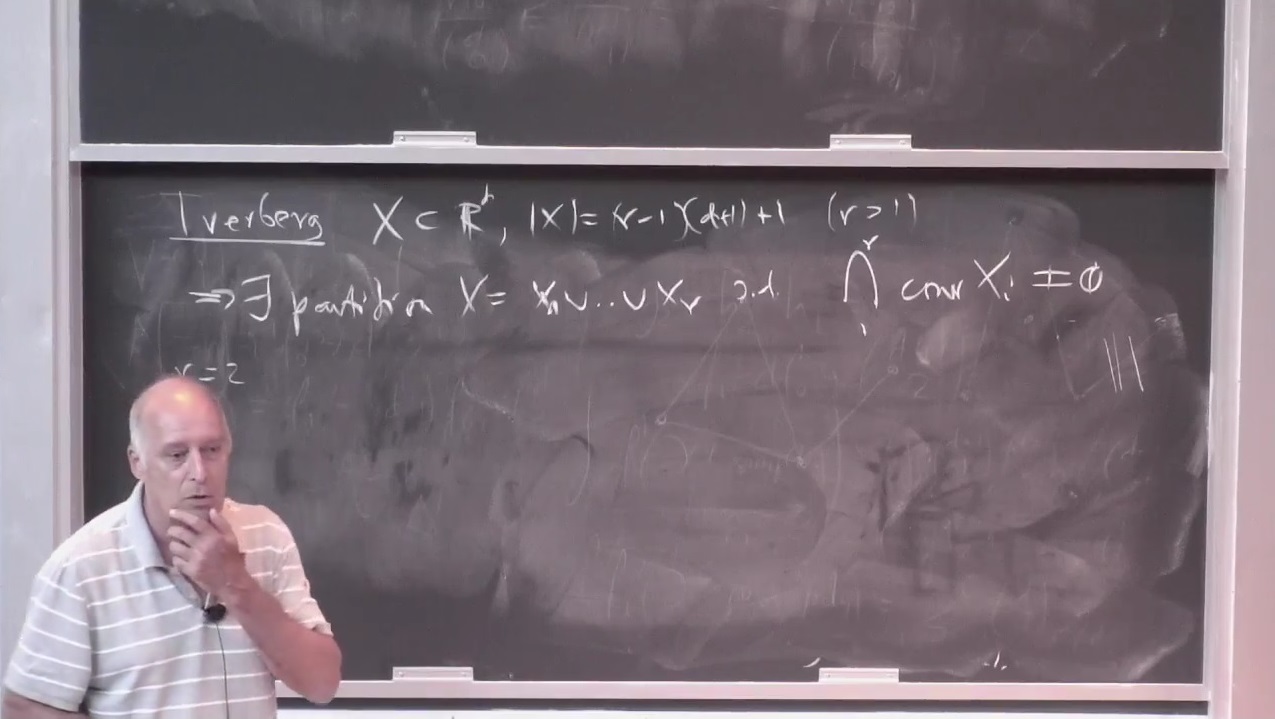 Tverberg X ⊂ ℝ^d, |X| = (r-1)(d+1)+1 (r>1)
⇒ ∃ partition X = X₁ ∪ .. ∪ X_r s.t. ⋂₁^r conv X_i ≠ ∅
r = 2